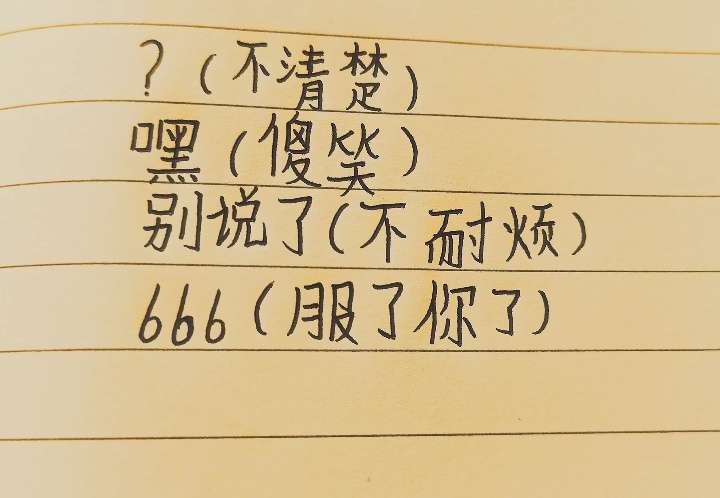 ?(不清楚)
嘿(傻笑)
别说了(不耐烦)
666(服了你了)